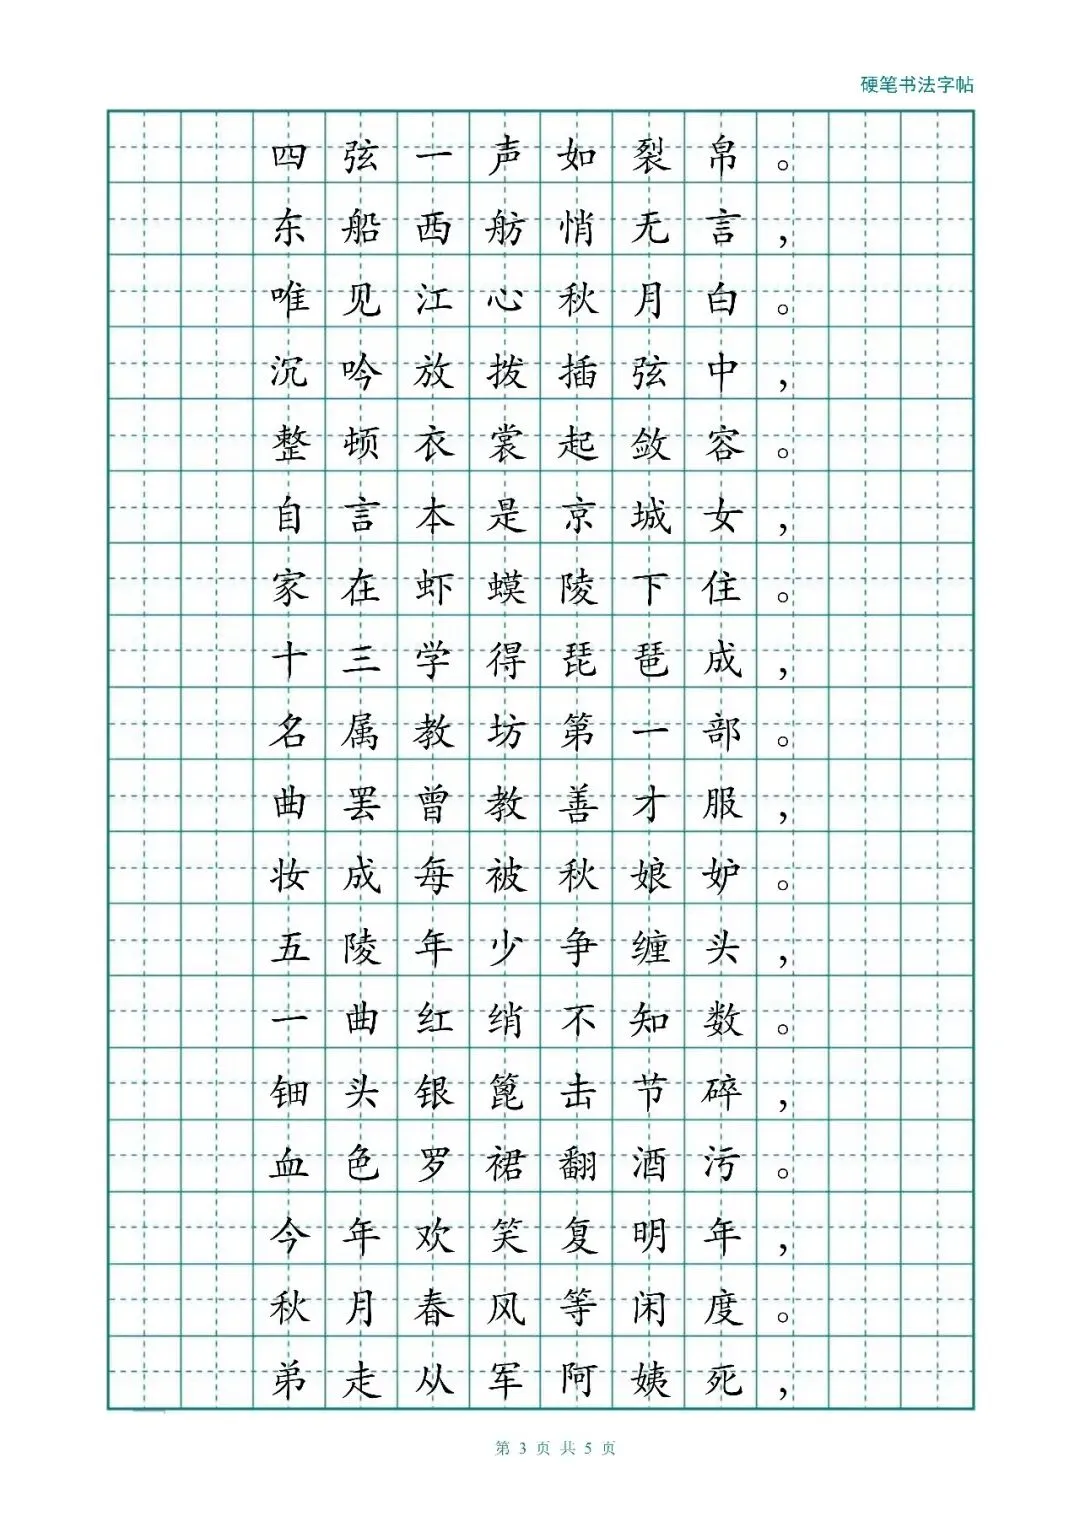 硬笔书法字帖
四弦一声如裂帛。
东船西舫悄无言，
唯见江心秋月白。
沉吟放拨插弦中，
整顿衣裳起敛容。
自言本是京城女，
家在虾蟆陵下住。
十三学得琵琶成，
名属教坊第一部。
曲罢曾教善才服，
妆成每被秋娘妒。
五陵年少争缠头，
一曲红绡不知数。
钿头银篦击节碎，
血色罗裙翻酒污。
今年欢笑复明年，
秋月春风等闲度。
弟走从军阿姨死，
第 3 页 共 5 页